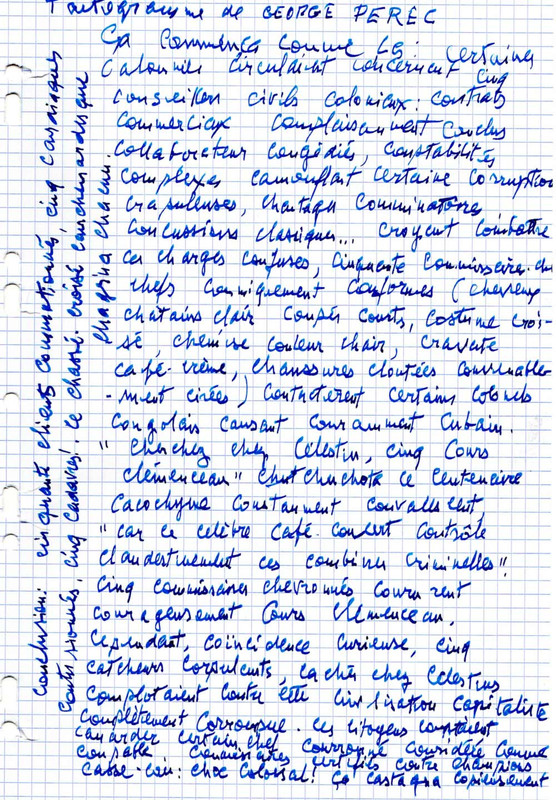 Tautogramme de GEORGE PEREC
Ça commença comme ça : certaines
calomnies circulaient concernant cinq
conseillers civils coloniaux : contrats
commerciaux complaisamment conclus
collaborateurs congédiés, comptabilités
complexes camouflant certaine corruption
crapuleuses, chantages comminatoires
concussions classiques... croyant combattre
ces charges confuses, cinquante commissaires en
chefs comiquement conformes (cheveux
chatains clair coupés courts, costume croi-
sé, chemise couleur chair, cravate
café-crème, chaussures cloutées convenable-
-ment cirées) contactèrent certains colonels
congolais causant couramment cubain.
"cherchez chez Célestin, cinq Cours
Clémenceau" chuchota ce centenaire
cacochyme constamment convalescent,
"car ce célèbre café-concert contrôle
clandestinement ces combines criminelles"!
cinq commissaires chevronnés coururent
courageusement Cours Clémenceau.
Cependant, coïncidence curieuse, cinq
catcheurs corpulents, cachés chez Célestins
complotaient contre cette civilisation capitaliste
complètement corrompue. ces citoyens comptaient
canarder certain chef couronné considéré comme
coupable commissaires certifiés contre champions
casse-cou : choc colossal! ça castagna copieusement
Conclusion : cinquante clients commotionnés, cinq cardiaques
contusionnés, cinq cadavres! ce chassé-croisé cauchemardesque
chagrina chacun.